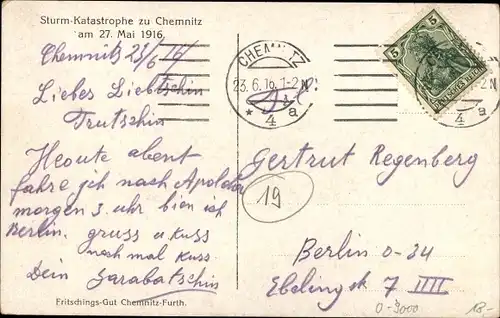 Sturm-Katastrophe zu Chemnitz
am 27. Mai 1916.
Chemnitz 23/6 16
Liebes Liebtschin
Trutschin
Heoute abent
fahre ich nach Apolda
morgen 3 uhr bien ich
Berlin. gruss u Kuss
noch mal Kuss
Dein Sarabatschin
Fritschings-Gut Chemnitz-Furth.
CHEMNITZ
23.6.16. 1-2 N
* 4 a
5
DEUTSCHES REICH
Gertrut Regenberg
19
Berlin O-34
Ebelingst 7 IIII
0-3000
18-